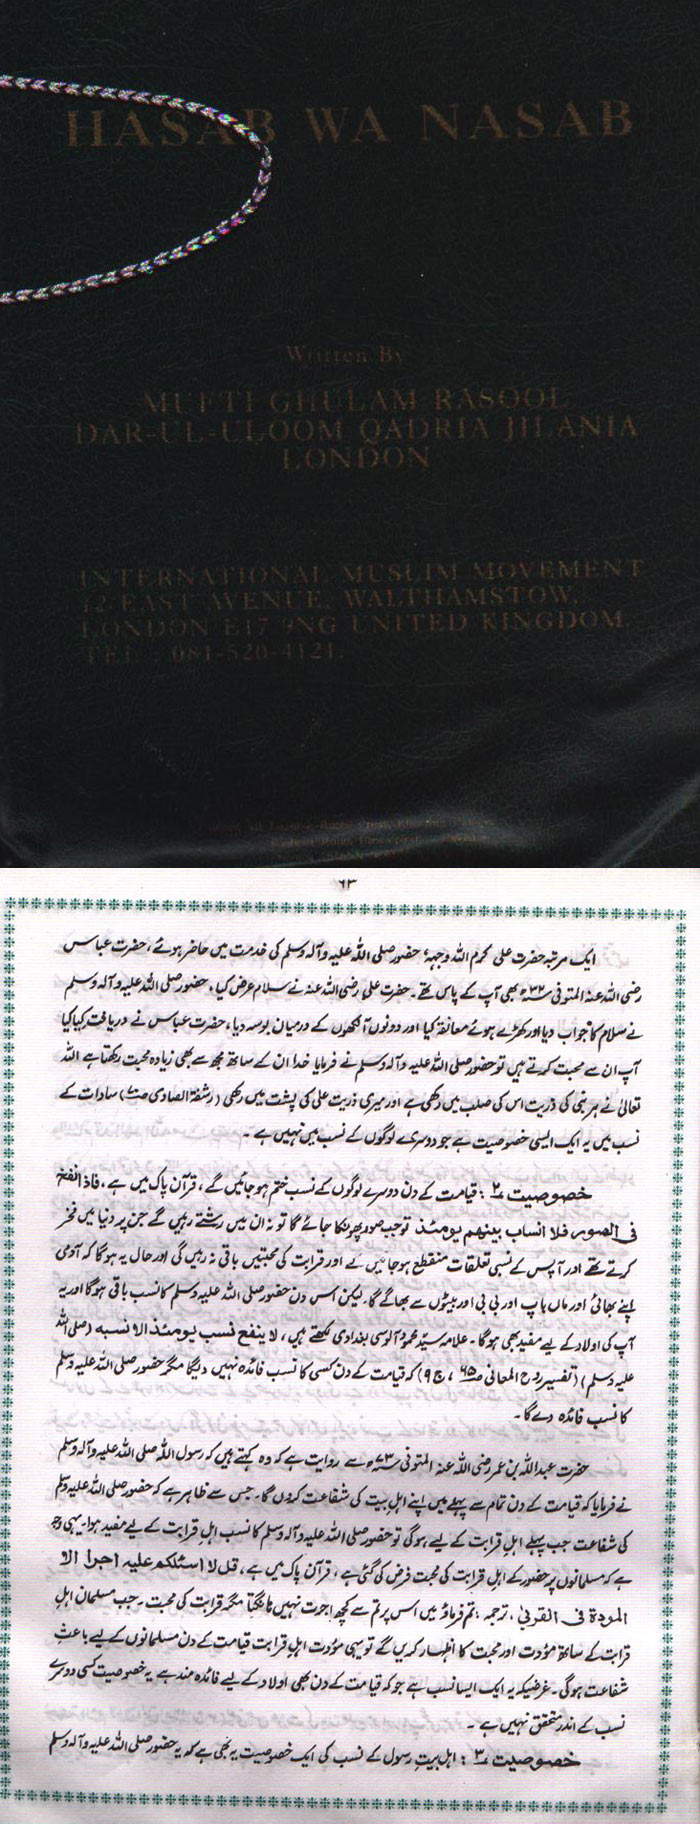 HASAB WA NASAB
Written By
MUFTI GHULAM RASOOL
DAR-UL-ULOOM QADRIA JILANIA
LONDON
INTERNATIONAL MUSLIM MOVEMENT
12-EAST AVENUE, WALTHAMSTOW,
LONDON E17 9NG UNITED KINGDOM.
TEL : 081-520-4121.
۶۳
ایک مرتبہ حضرت علی کرم اللہ وجہہٗ حضور صلی اللہ علیہ وآلہ وسلم کی خدمت میں حاضر ہوئے، حضرت عباس
رضی اللہ عنہ المتوفی ۳۲ھ بھی آپ کے پاس تھے۔ حضرت علی رضی اللہ عنہ نے سلام عرض کیا، حضور صلی اللہ علیہ وآلہ وسلم
نے سلام کا جواب دیا اور کھڑے ہوئے معانقہ کیا اور دونوں آنکھوں کے درمیان بوسہ دیا، حضرت عباس نے دریافت کیا کیا
آپ ان سے محبت کرتے ہیں تو حضور صلی اللہ علیہ وآلہ وسلم نے فرمایا خدا ان کے ساتھ مجھ سے بھی زیادہ محبت رکھتا ہے اللہ
تعالیٰ نے ہر نبی کی ذریت اس کی صلب میں رکھی ہے اور میری ذریت علی کی پشت میں رکھی (رشفۃ الصادی) سادات کے
نسب میں یہ ایک ایسی خصوصیت ہے جو دوسرے لوگوں کے نسب میں نہیں ہے۔
خصوصیت ۲: قیامت کے دن دوسرے لوگوں کے نسب ختم ہو جائیں گے، قرآن پاک میں ہے، فاذا نفخ
فی الصور فلا انساب بینھم یومئذ توجب صور پھونکا جائے گا تو نہ ان میں رشتے رہیں گے جن پر دنیا میں فخر
کرتے تھے اور آپس کے نسبی تعلقات منقطع ہو جائیں گے اور قرابت کی محبتیں باقی نہ رہیں گی اور حال یہ ہوگا کہ آدمی
اپنے بھائی اور ماں باپ اور بی بی اور بیٹوں سے بھاگے گا۔ لیکن اس دن حضور صلی اللہ علیہ وسلم کا نسب باقی ہوگا اور یہ
آپ کی اولاد کے لیے مفید بھی ہوگا۔ علامہ سید محمود آلوسی بغدادی لکھتے ہیں، لا ینفع نسب یومئذ الا نسبہ (صلی اللہ
علیہ وسلم) (تفسیر روح المعانی ص۶۵، ج۹) کہ قیامت کے دن کسی کا نسب فائدہ نہیں دیگا مگر حضور صلی اللہ علیہ وسلم
کا نسب فائدہ دے گا۔
حضرت عبداللہ بن عمر رضی اللہ عنہ المتوفی ۷۳ھ سے روایت ہے کہ وہ کہتے ہیں کہ رسول اللہ صلی اللہ علیہ وآلہ وسلم
نے فرمایا کہ قیامت کے دن تمام سے پہلے میں اپنے اہل بیت کی شفاعت کروں گا۔ جس سے ظاہر ہے کہ حضور صلی اللہ علیہ وسلم
کی شفاعت جب پہلے اہل قرابت کے لیے ہوگی تو حضور صلی اللہ علیہ وآلہ وسلم کا نسب اہل قرابت کے لیے مفید ہوا۔ یہی وجہ
ہے کہ مسلمانوں پر حضور کے اہل قرابت کی محبت فرض کی گئی ہے، قرآن پاک میں ہے، قل لا اسئلکم علیہ اجرا الا
المودۃ فی القربیٰ، ترجمہ: تم فرماؤ میں اس پر تم سے کچھ اجرت نہیں مانگتا مگر قرابت کی محبت۔ جب مسلمان اہل
قرابت کے ساتھ مؤدت اور محبت کا اظہار کریں گے تو یہی مؤدت اہل قرابت قیامت کے دن مسلمانوں کے لیے باعث
شفاعت ہوگی۔ غرضیکہ یہ ایک ایسا نسب ہے جو کہ قیامت کے دن بھی اولاد کے لیے فائدہ مند ہے یہ خصوصیت کسی دوسرے
نسب کے اندر متحقق نہیں ہے۔
خصوصیت ۳: اہل بیت رسول کے نسب کی ایک خصوصیت یہ بھی ہے کہ یہ حضور صلی اللہ علیہ وآلہ وسلم